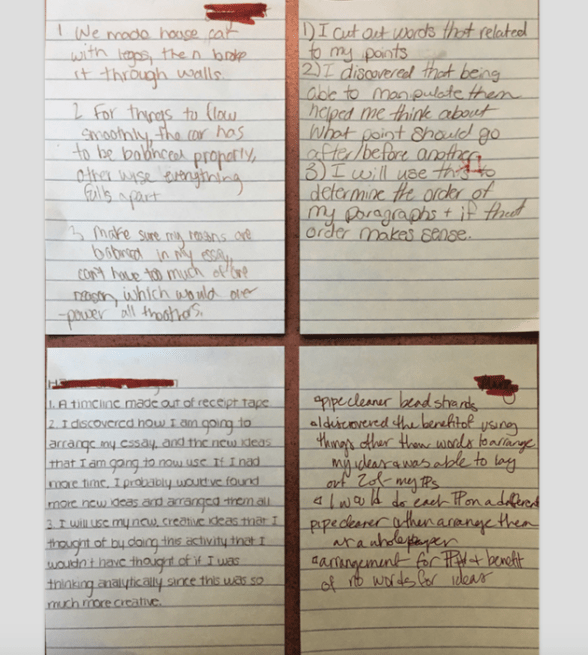 1 We made house car
with legos, then broke
it through walls
2 For things to flow
smoothly, the car has
to be balanced properly,
otherwise everything
falls apart
3 Make sure my reasons are
balanced in my essay,
can't have too much of one
reason, which would over
-power all the others.
1) I cut out words that related
to my points
2) I discovered that being
able to manipulate them
helped me think about
what point should go
after/before another.
3) I will use this to
determine the order of
my paragraphs + if that
order makes sense.
1. A timeline made out of receipt tape
2. I discovered how I am going to
arrange my essay, and the new ideas
that I am going to now use. If I had
more time, I probably would've found
more new ideas and arranged them all
3. I will use my new, creative ideas that I
thought of by doing this activity that I
wouldn't have thought of if I was
thinking analytically since this was so
much more creative.
pipecleaner bead strands
I discovered the benefit of using
things other then words to arrange
my ideas & was able to lay
out 2 of my ¶s
I would do each ¶ on a different
pipecleaner & then arrange them
as a whole paper
arrangement for + benefit
of no words for ideas